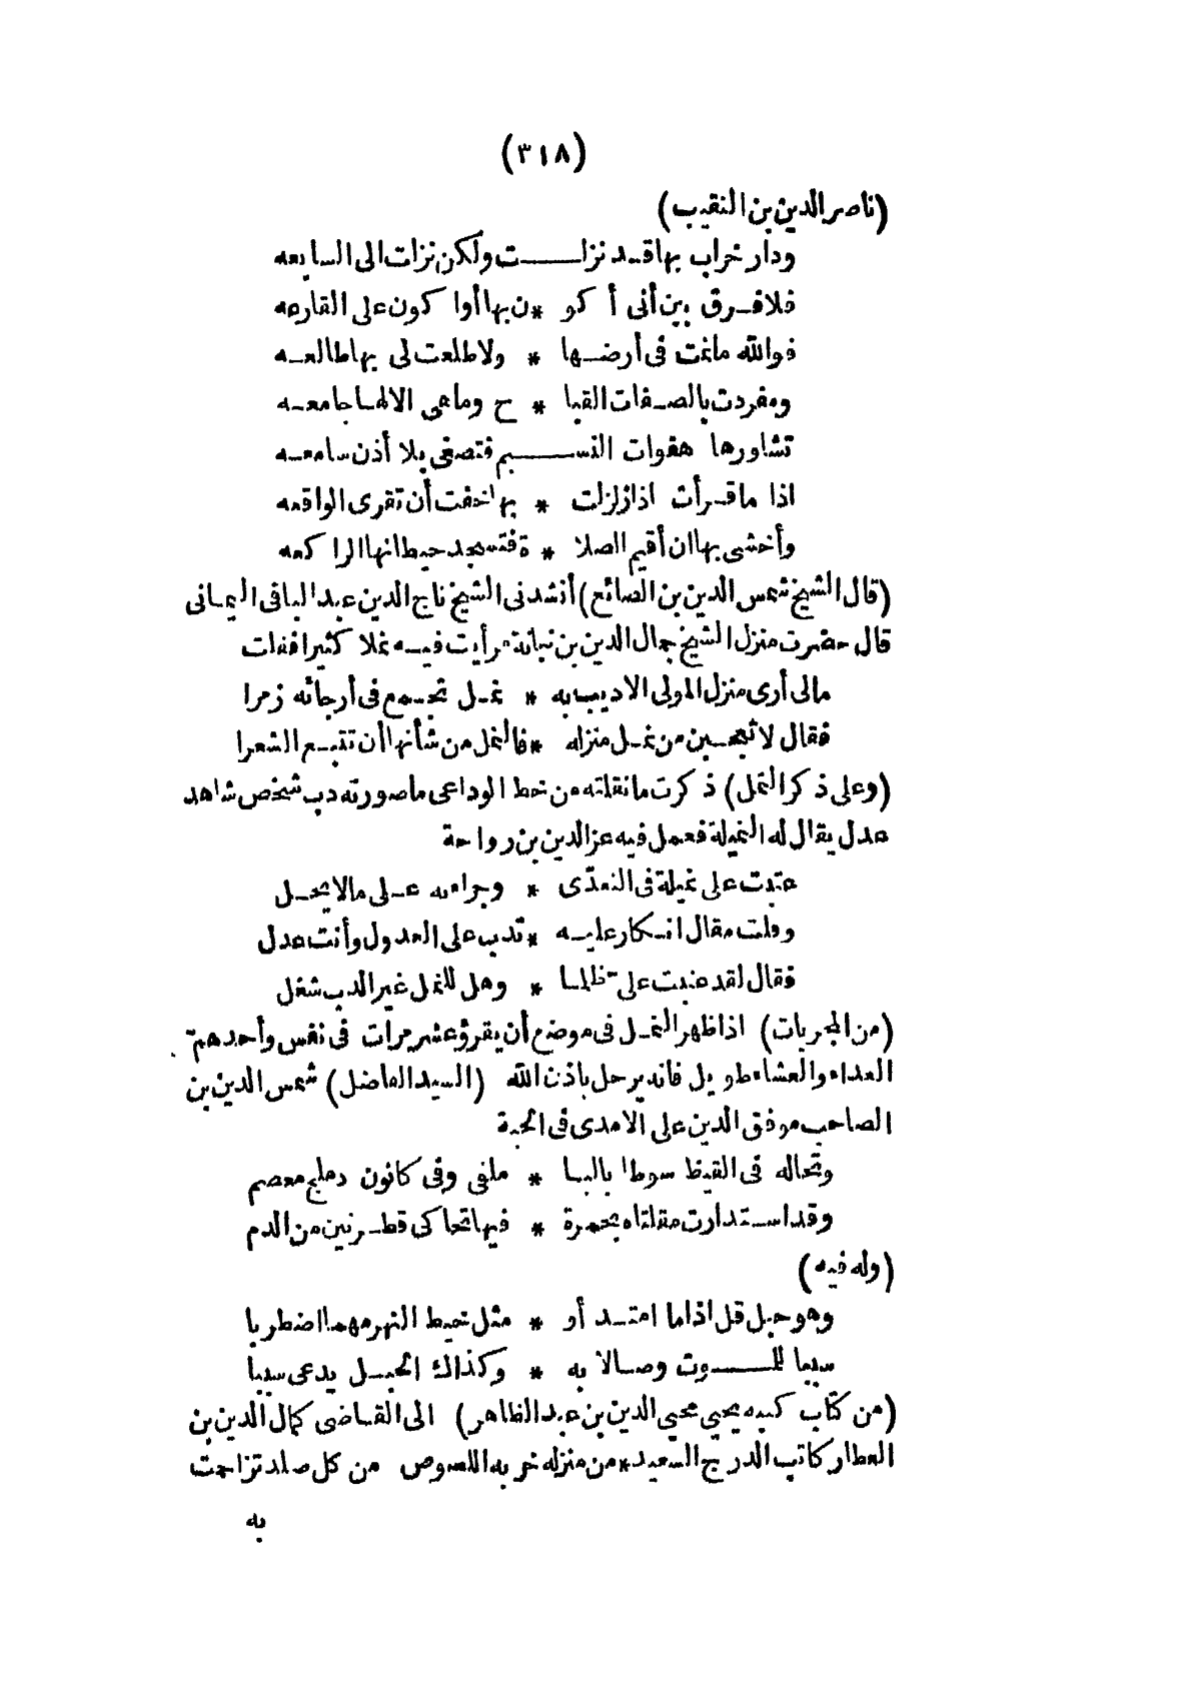 (٣١٨)
(ناصر الدين بن النقيب)
ودار خراب بها قد نزلت ولكن نزلت الى السابعه
فلا فرق بين أنى أكو * ن بها أوا كون على القارعه
فوالله ما نمت فى أرضها * ولا طلعت لى بها طالعه
ومفردت بالصفات القبا * ح وما هى الا لها جامعه
تشاورها هفوات النسيم فتصغى بلا أذن سامعه
اذا ما قرأت اذا زلزلت * بها خفت أن تقرى الواقعه
وأخشى بها ان أقيم الصلا * ة فتسجد حيطانها الراكعه
(قال الشيخ شمس الدين بن الصائغ) أنشدنى الشيخ تاج الدين عبد الباقى اليمانى
قال حضرت منزل الشيخ جمال الدين بن نباتة فرأيت فيه نملا كثيرا فقلت
مالى أرى منزل المولى الاديب به * نمل تجمع فى أرجائه زمرا
فقال لا تعجبن من نمل منزله * فالنمل من شأنها أن تتبع الشعرا
(وعلى ذكر النمل) ذكرت ما نقلته من خط الوداعى ما صورته دب شخص شاهد
عدل يقال له النميلة فعمل فيه عز الدين بن رواحة
عتبت على نميلة فى التعدّى * وجراءته على مالا يحل
وقلت مقال انكار عليه * تدب على العدول وأنت عدل
فقال لقد عتبت على ظلما * وهل للنمل غير الدب شغل
(من المجربات) اذا ظهر النمل فى موضع أن يقرؤ عشر مرات فى نفس واحد هم
العداء والعشاء طويل فانه يرحل باذن الله (السيد الفاضل) شمس الدين بن
الصاحب موفق الدين على الامدى فى الحية
وتخاله فى القيظ سوطا باليا * ملقى وفى كانون دملج معصم
وقد استدارت مقلتاه بحمرة * فيها تحاكى قطرتين من الدم
(وله فيه)
وهو حبل قل اذا ما امتد أو * مثل خيط النهر مهما اضطربا
سببا للموت وصالا به * وكذاك الحبل يدعى سببا
(من كتاب كتبه محيى الدين بن عبد الظاهر) الى القاضى كمال الدين بن
العطار كاتب الدرج السعيد * من منزله خربه اللصوص من كل صلد تزاحمت
به